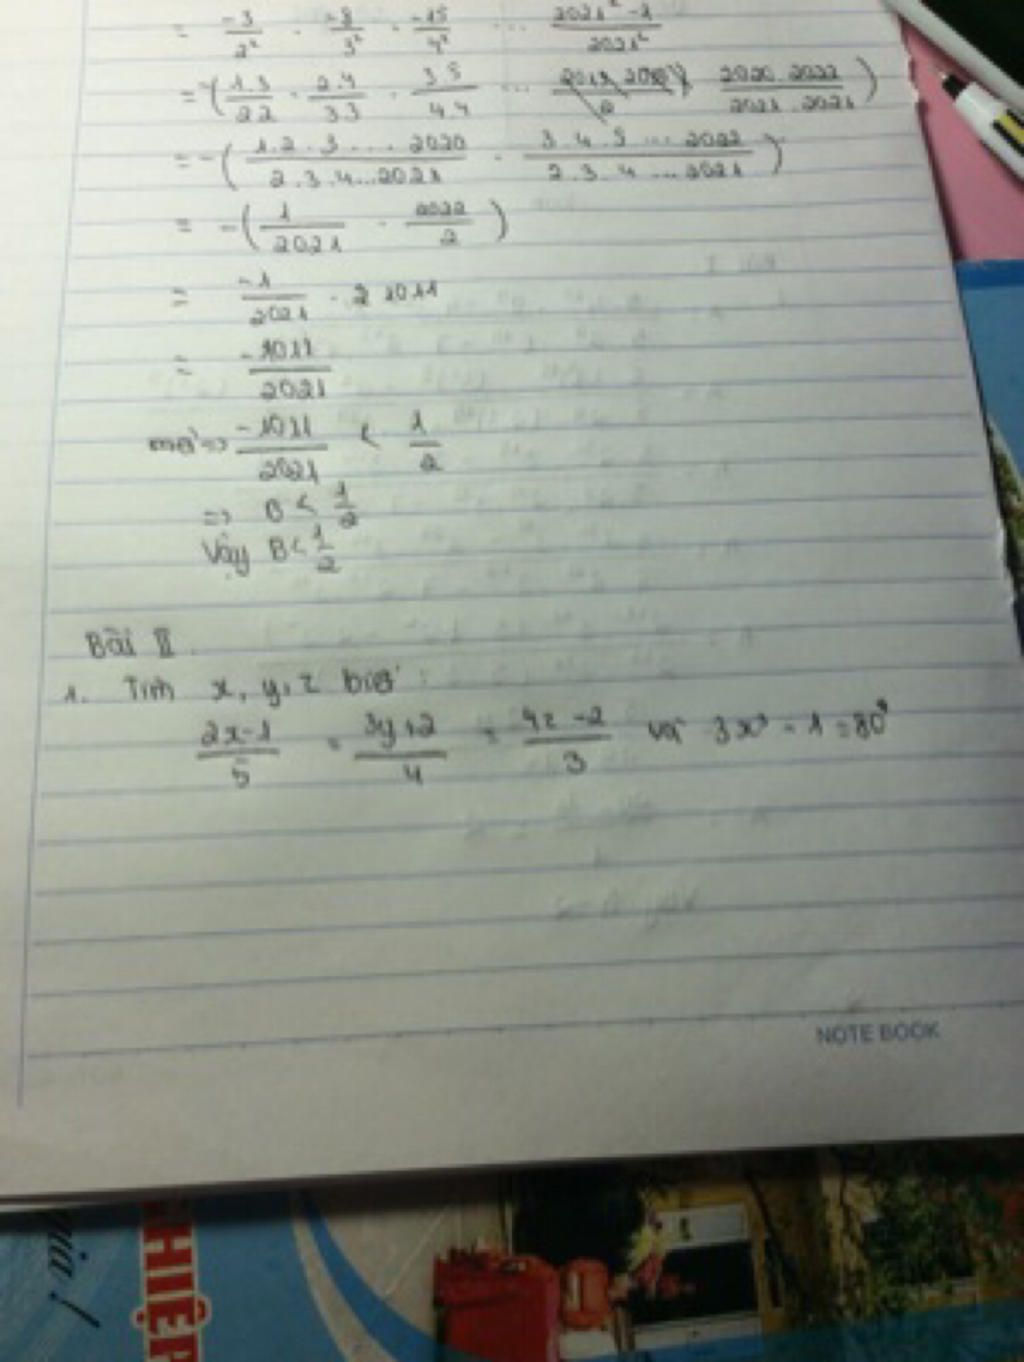 = -3/2² . -8/3² . -15/4² ... 2021² - 1/2021²
= -(1.3/2.2 . 2.4/3.3 . 3.5/4.4 ... 2020.2022/2021.2021)
= -(1.2.3....2020/2.3.4...2021 . 3.4.5...2022/2.3.4...2021)
= -(1/2021 . 2022/2)
= -1/2021 . 1011
= -1011/2021
⇒ -1011/2021 < 1/2
⇒ B < 1/2
Vậy B < 1/2
Bài II
1. Tìm x, y, z biết :
2x-1/5 = 3y+2/4 = 4z-2/3 và 3x³ - 1 = 80
NOTE BOOK